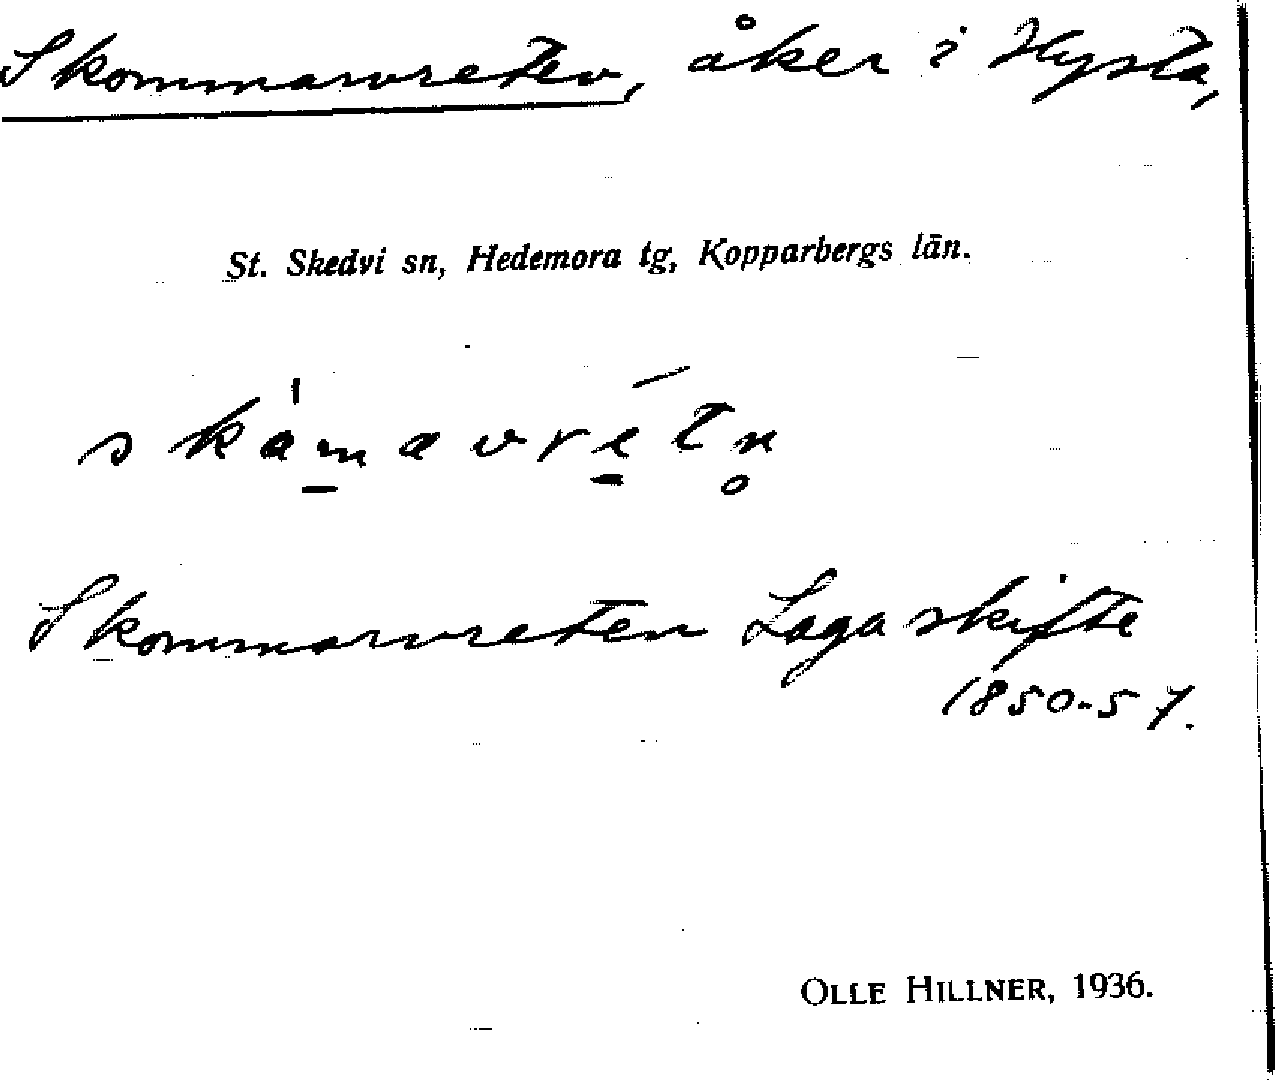 Skommarvreten, åker i Hysta,
St. Skedvi sn, Hedemora tg, Kopparbergs län.
skåmavrétn
Skommarvreten Laga skifte
1850-57.
OLLE HILLNER, 1936.